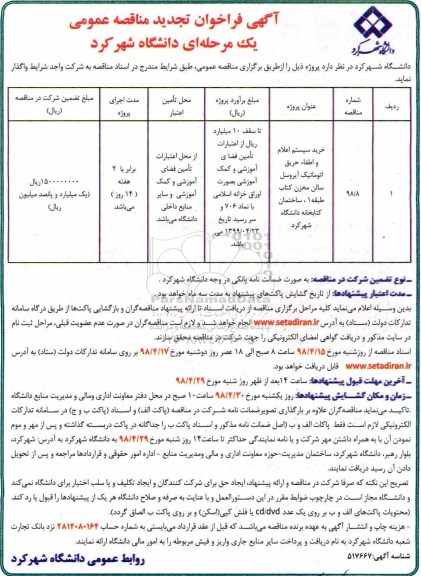 آگهی فراخوان تجدید مناقصه عمومی
یک مرحله‌ای دانشگاه شهرکرد
دانشگاه شهرکرد
دانشگاه شهرکرد در نظر دارد پروژه ذیل را ازطریق برگزاری مناقصه عمومی، طبق شرایط مندرج در اسناد مناقصه به شرکت واجد شرایط واگذار
نماید.
ردیف
شماره مناقصه
عنوان پروژه
مبلغ برآورد پروژه (ریال)
محل تأمین اعتبار
مدت اجرای پروژه
مبلغ تضمین شرکت در مناقصه (ریال)
۱
۹۸/۸
خرید سیستم اعلام
و اطفاء حریق
اتوماتیک آیروسل
سالن مخزن کتاب
طبقه۱، ساختمان
کتابخانه دانشگاه
شهرکرد
تا سقف ۱۰ میلیارد
ریال از اعتبارات
تأمین فضای
آموزشی و کمک
آموزشی بصورت
اوراق خزانه اسلامی
با نماد ۷۰۶ و
سر رسید تاریخ
۱۳۹۹/۰۴/۲۳ می
باشد.
از محل اعتبارات
تأمین فضای
آموزشی و کمک
آموزشی و سایر
منابع داخلی
دانشگاه می‌باشد.
برابر با ۲
هفته
(۱۴ روز)
می‌باشد.
۱۵۰۰۰۰۰۰۰۰ریال
(یک میلیارد و پانصد میلیون
ریال)
ـ نوع تضمین شرکت در مناقصه: به صورت ضمانت نامه بانکی در وجه دانشگاه شهرکرد.
ـ مدت اعتبار پیشنهادها: از تاریخ گشایش پاکت‌های پیشنهاد به مدت سه ماه خواهد بود.
بدین وسیله اعلام می‌نماید کلیه مراحل برگزاری مناقصه از دریافت اسناد تا ارائه پیشنهاد مناقصه‌گران و بازگشایی پاکت‌ها از طریق درگاه سامانه
تدارکات دولت (ستاد) به آدرس www.setadiran.ir انجام خواهد شد و لازم است مناقصه‌گران در صورت عدم عضویت قبلی، مراحل ثبت نام
در سایت مذکور و دریافت گواهی امضای الکترونیکی را جهت شرکت در مناقصه محقق سازند.
اسناد مناقصه از روزشنبه مورخ ۹۸/۴/۱۵ ساعت ۸ صبح الی ۱۸ عصر روز دوشنبه مورخ ۹۸/۴/۱۷ بر روی سامانه تدارکات دولت (ستاد) به آدرس
www.setadiran.ir قابل دریافت خواهد بود.
ـ آخرین مهلت قبول پیشنهادها: ساعت ۱۴ بعد از ظهر روز شنبه مورخ ۹۸/۴/۲۹
ـ زمان و مکان گشایش پیشنهادها: روز یکشنبه مورخ ۹۸/۴/۳۰ ساعت ۱۰ صبح در محل دفتر معاونت اداری ومالی و مدیریت منابع دانشگاه
.تاکید می‌نماید مناقصه‌گران علاوه بر بارگذاری تصویرضمانت نامه شرکت در مناقصه (پاکت الف) و اسناد (پاکت ب و ج) در سامانه تدارکات
الکترونیکی لازم است فقط پاکات الف و ب (اصل ضمانت نامه مذکور و اسناد پاکت ب) را جداگانه در پاکت دربسته گذاشته و پس از مهر و موم
نمودن آن با به همراه داشتن مهر شرکت و یا نامه نمایندگی حداکثر تا ساعت۱۴ روز شنبه مورخ ۹۸/۴/۲۹ به دانشگاه شهرکرد به آدرس: شهرکرد،
بلوار رهبر، دانشگاه شهرکرد، ساختمان مدیریت-حوزه معاونت اداری و مالی ومدیریت منابع - اداره امور حقوقی و قراردادها مراجعه و پس از تحویل
دادن آن رسید دریافت نمایند.
تصریح این نکته که صرفا شرکت در مناقصه و ارائه پیشنهاد، ایجاد حق برای شرکت کنندگان و ایجاد تکلیف و یا سلب اختیار برای دانشگاه نمی‌کند
و دانشگاه مجاز است در چارچوب ضوابط مقرر در این دستورالعمل و با عنایت به صرفه و صلاح دانشگاه هر یک از پیشنهادها را قبول یا رد کند.
(محتویات پاکت‌های الف و ب بر روی یک عدد cd/dvd یا فلش کپی(اسکن) و بر روی پاکت ب الصاق گردد).
- هزینه چاپ و انتشار آگهی به عهده برنده مناقصه می‌باشد.که قبل از عقد قرارداد می‌بایستی به شماره حساب ۲۸۱۴۰۸۰۱۶۴ نزد بانک تجارت
شعبه دانشگاه شهرکرد به نام دریافت و پرداخت سایر منابع جاری واریز و فیش مربوطه را به امور مالی دانشگاه ارائه نمایند.
شناسه آگهی:۵۱۷۶۶۷
روابط عمومی دانشگاه شهرکرد